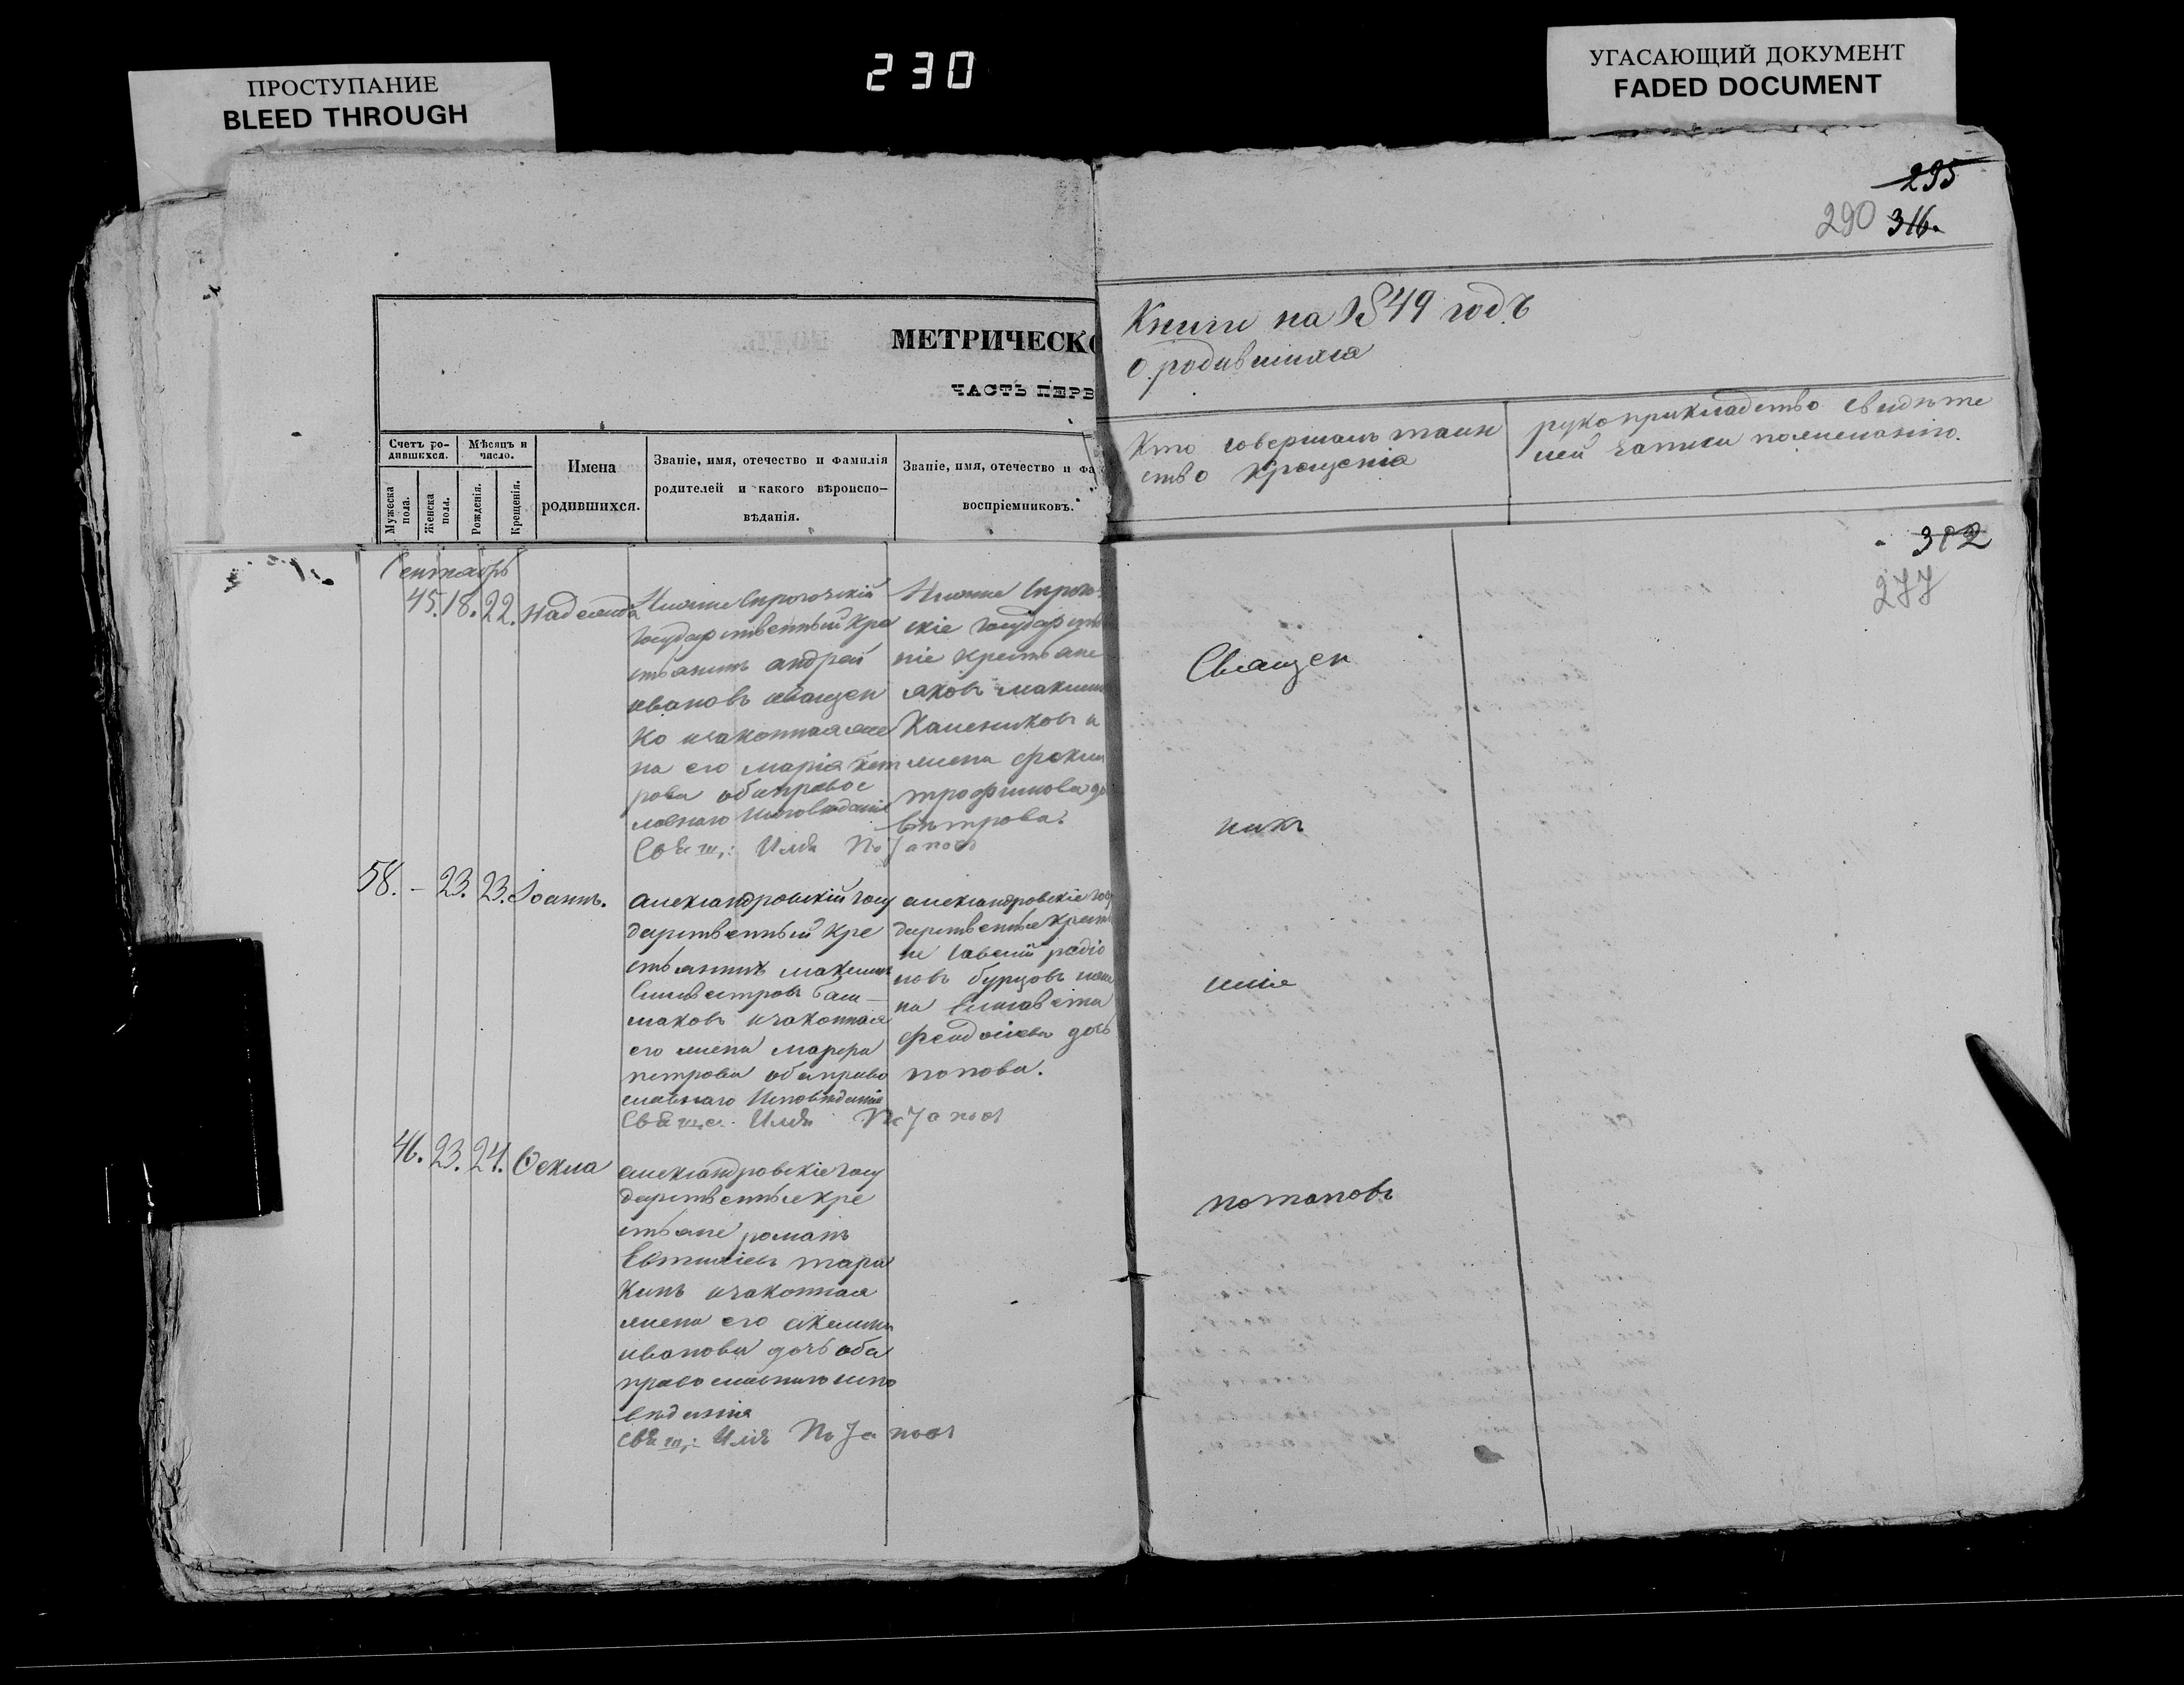 230
ПРОСТУПАНИЕ
BLEED THROUGH
УГАСАЮЩИЙ ДОКУМЕНТ
FADED DOCUMENT
295
290 316.
МЕТРИЧЕСКО
ЧАСТЬ ПЕРВ
Книги на 1849 годъ
о родившихся
Счетъ ро-
дившихся.
Мѣсяцъ и
число.
Мужеска
пола.
Женска
пола.
Рожденія.
Крещенія.
Имена
родившихся.
Званіе, имя, отечество и фамилія
родителей и какого вѣроиспо-
вѣданія.
Званіе, имя, отечество и фа
воспріемниковъ.
Кто совершалъ таин
ство крещенія
рукоприкладство свидѣте
лей записи по желанію.
312
277
Сентябрь
45. 18. 22. Надежда
Государственный кре
стьянинъ андрей
ивановъ иващен
ко изаконная же
на его марія
рова обаправос
лавнаго Исповѣданія
скіе государств
ніе крестьяне
яковъ максим
Камениковъ и
жена
трофимова до
вѣтрова.
Свящ: Илія Потапов
58. – 23. 23. Іоаннъ.
александровскій госу
дарственный кре
стьянинъ максимъ
Силивестровъ баш-
маковъ изаконная
его жена марѳра
петрова обаправо
славнаго Исповѣданія
александровскіе госу
дарственные крестья
не савелій радіо
новъ бурцовъ иже
на Елисавета
дочь
попова.
Свящ. Илія Потапов
46. 23. 24. Ѳекла
александровскіе госу
дарственные кре
стьяне романъ
Евтихіевъ тара
кинъ изаконная
жена его акилина
иванова дочь оба
православнаго испо
вѣданія
Свящ: Илія Потапов
Священ
никъ
илія
потаповъ